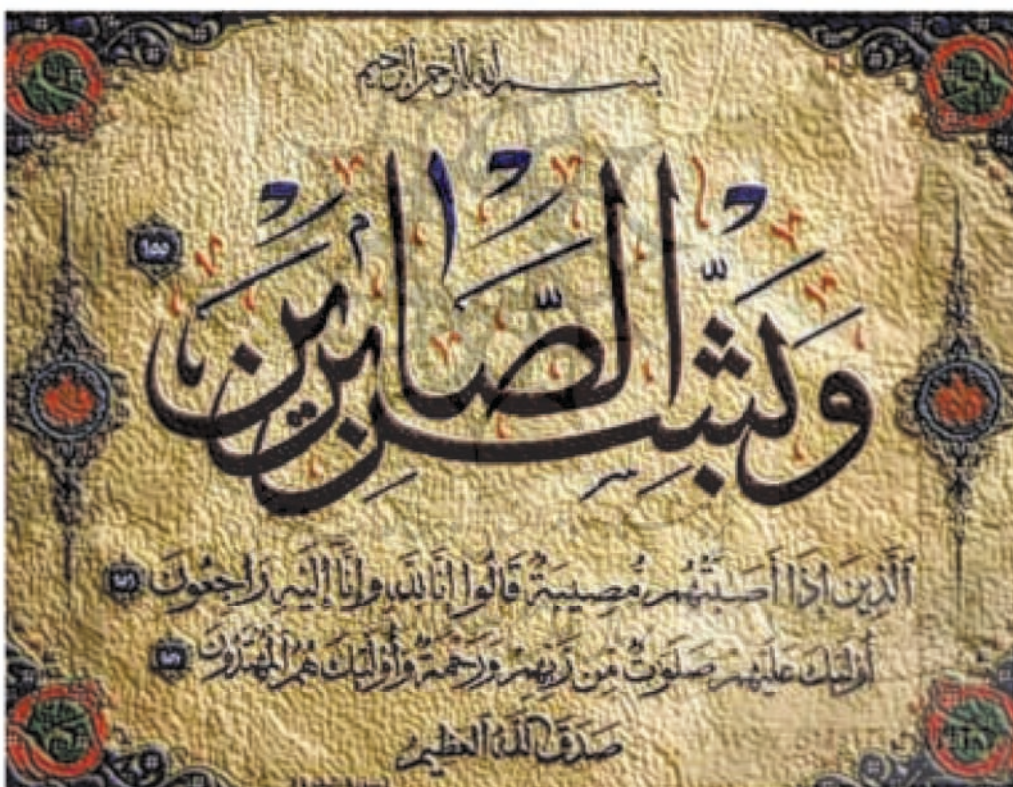 بسم الله الرحمن الرحيم
وَبَشِّرِ الصَّابِرِينَ ١٥٥
ٱلَّذِينَ إِذَا أَصَٰبَتْهُم مُّصِيبَةٌ قَالُوا إِنَّا لِلَّهِ وَإِنَّا إِلَيْهِ رَاجِعُونَ ١٥٦
أُوْلَٰئِكَ عَلَيْهِمْ صَلَوَٰتٌ مِّن رَّبِّهِمْ وَرَحْمَةٌ وَأُوْلَٰئِكَ هُمُ الْمُهْتَدُونَ ١٥٧
صَدَقَ اللَّهُ الْعَظِيمُ